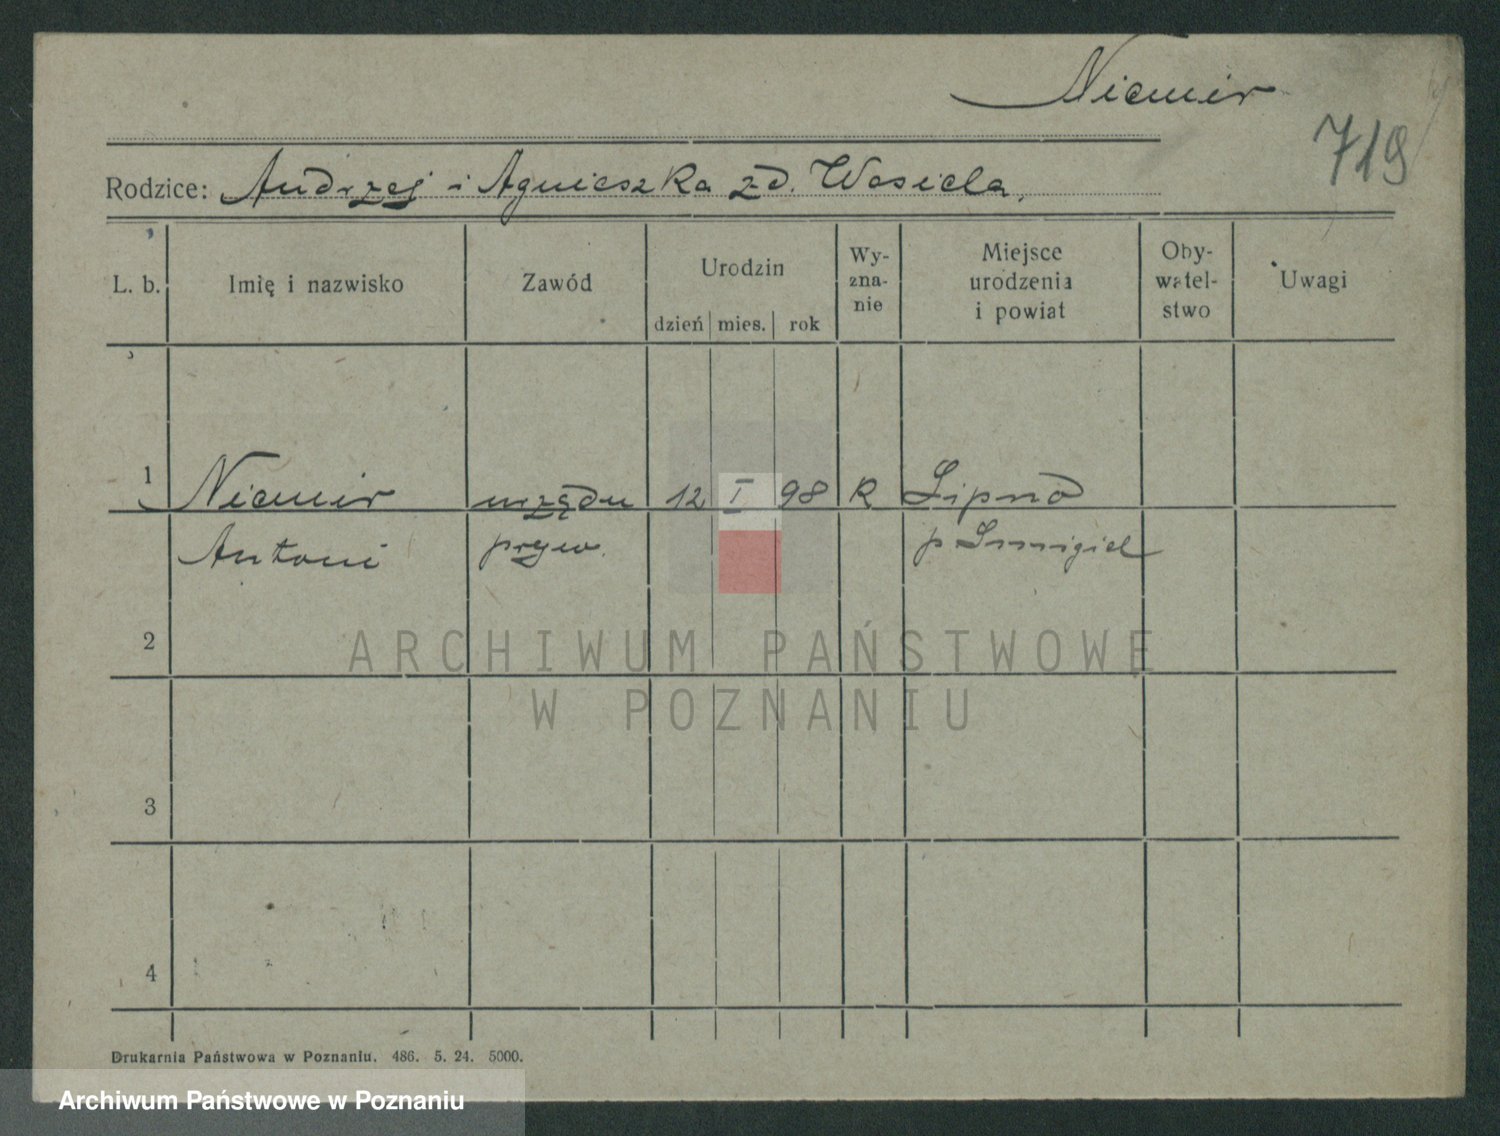 Niemir
719
Rodzice: Andrzej i Agnieszka zd. Wosiela.
L. b. Imię i nazwisko Zawód Urodzin dzień mies. rok Wy-zna-nie Miejsce urodzenia i powiat Oby-watel-stwo Uwagi
1 Niemir urzędn 12 I 98 R Lipno
Antoni pryw. p Smigiel
2
ARCHIWUM PAŃSTWOWE
W POZNANIU
3
4
Drukarnia Państwowa w Poznaniu. 486. 5. 24. 5000.
Archiwum Państwowe w Poznaniu